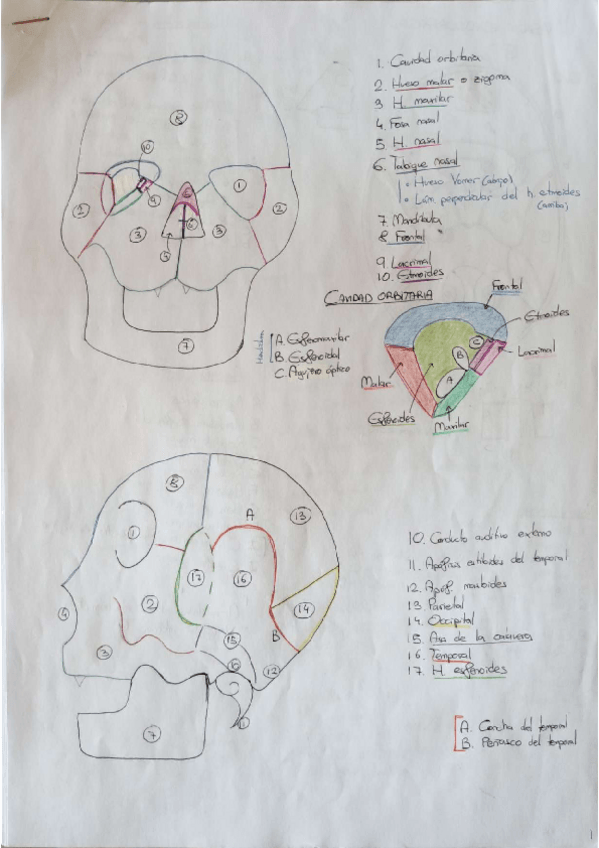 1. Cavidad orbitaria
2. Hueso malar o zigoma
3 H. maxilar
4. Fosa nasal
5. H. nasal
6. Tabique nasal
• Hueso Vomer (abajo)
• Lám. perpendicular del h. etmoides (arriba)
7 Mandíbula
8 Frontal
9. Lacrimal
10. Etmoides
8
10
1
2
9
6
2
3
3
5
7
CAVIDAD ORBITARIA
Frontal
Etmoides
Lacrimal
Malar
Esfenoides
Maxilar
A
B
C
Hendidura
A. Esfenomaxilar
B. Esfenoidal
C. Agujero óptico
8
A
13
1
17
16
14
4
2
B
15
3
10
12
11
7
10. Conducto auditivo externo
11. Apófisis estiloides del temporal
12. Apóf. mastoides
13 Parietal
14. Occipital
15. Asa de la
16. Temporal
17. H. esfenoides
A. Concha del temporal
B. Peñasco del temporal
1